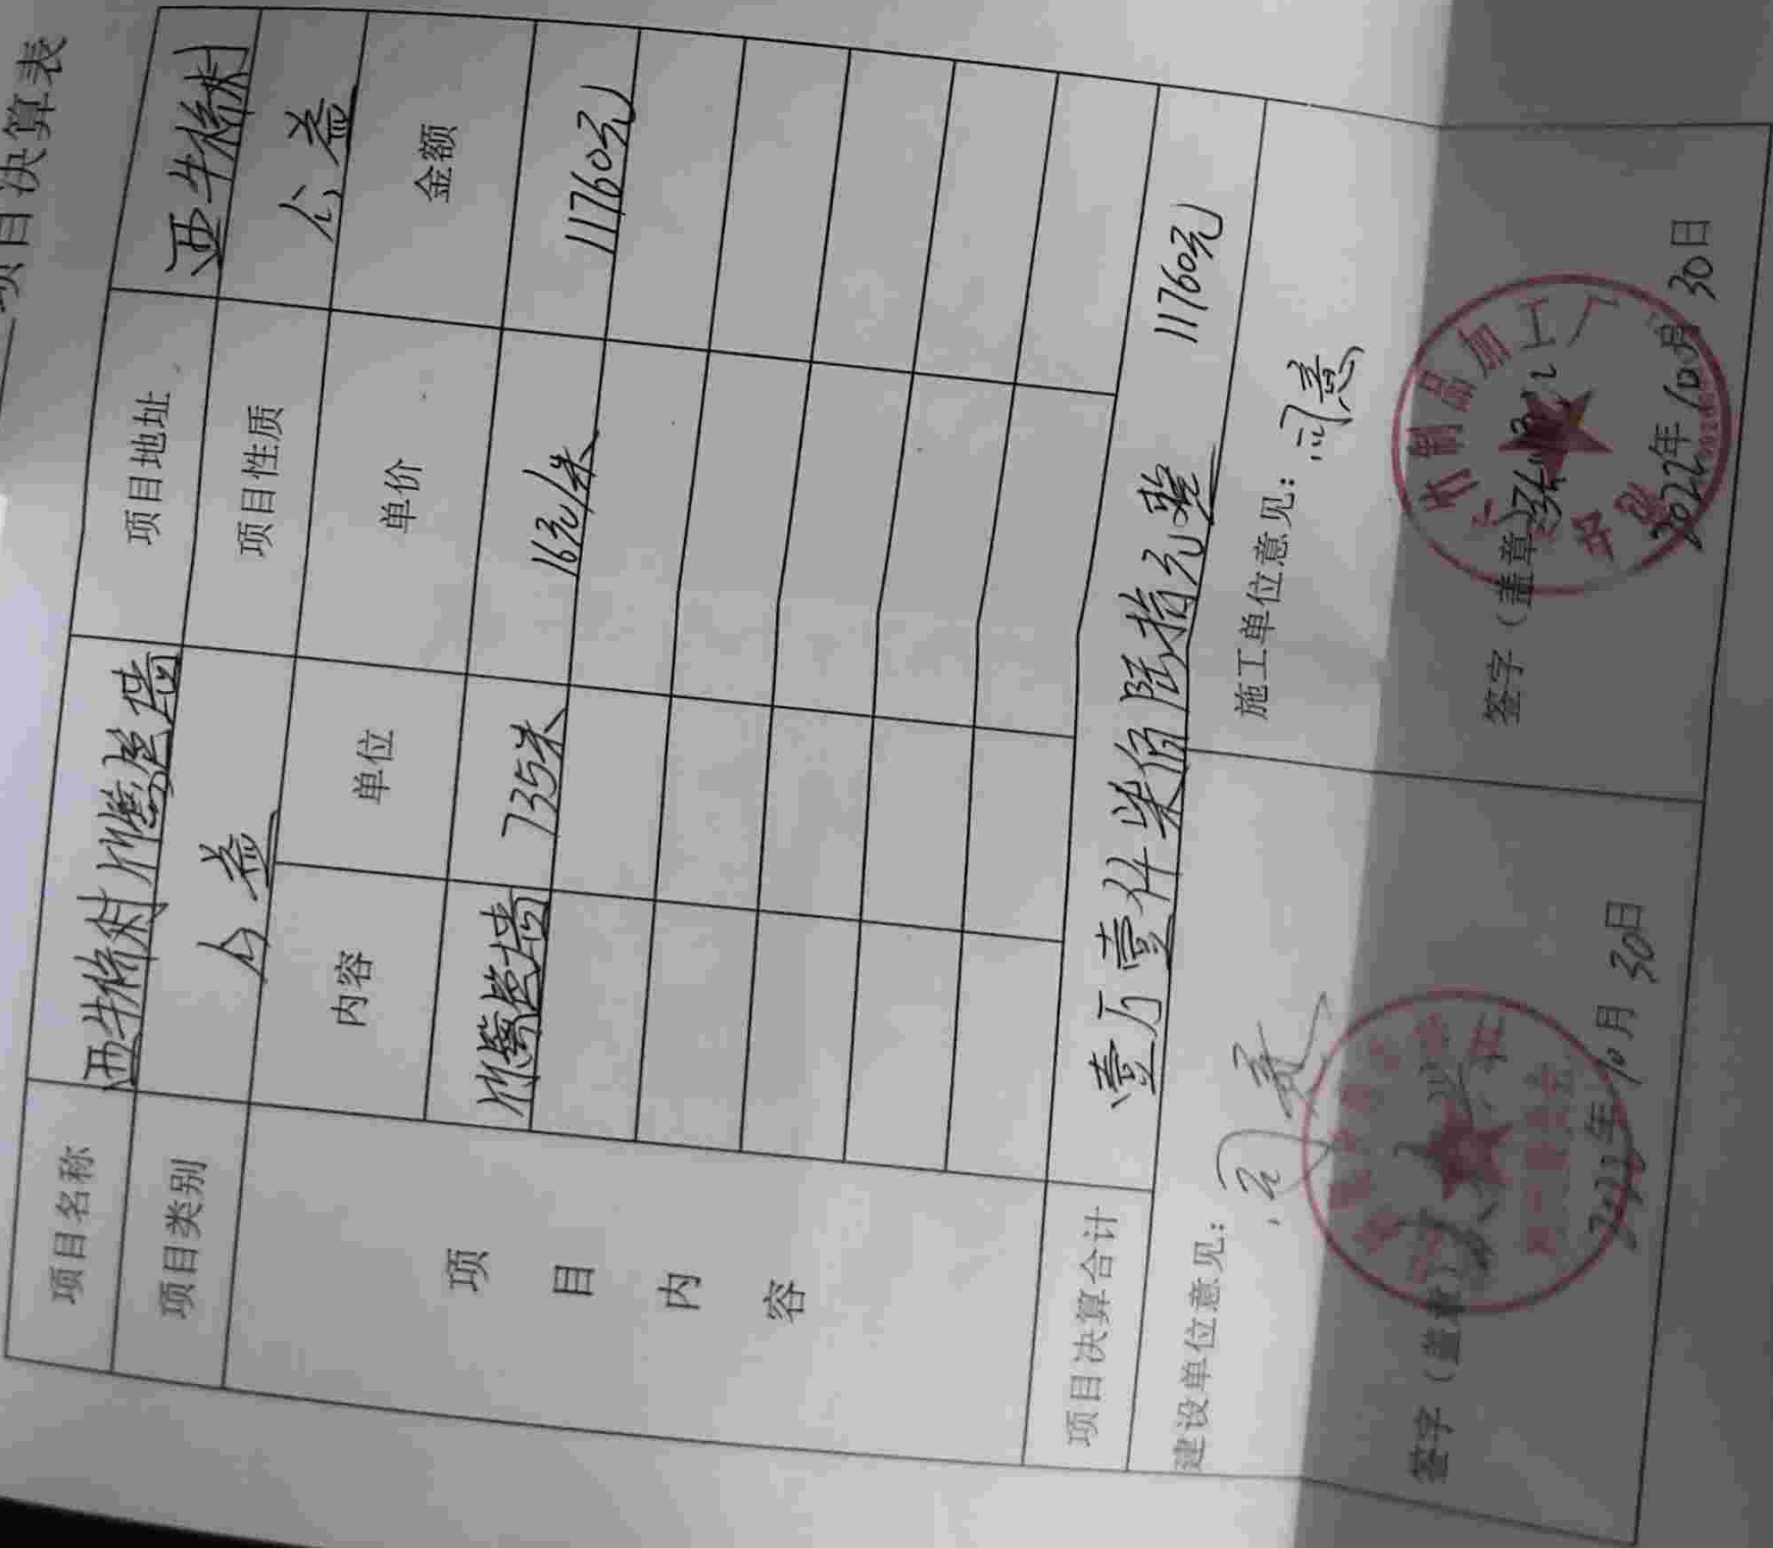 项目决算表
项目名称 西牛桥村竹篱笆墙 项目地址 西牛桥村
项目类别 公益 项目性质 公益
项目内容 内容 单位 单价 金额
竹篱笆墙 735米 16元/米 11760元
项目决算合计 壹万壹仟柒佰陆拾元整 11760元
建设单位意见: 同意 施工单位意见: 同意
签字(盖章) 签字(盖章)
2022年10月30日 2022年10月30日
制品加工厂